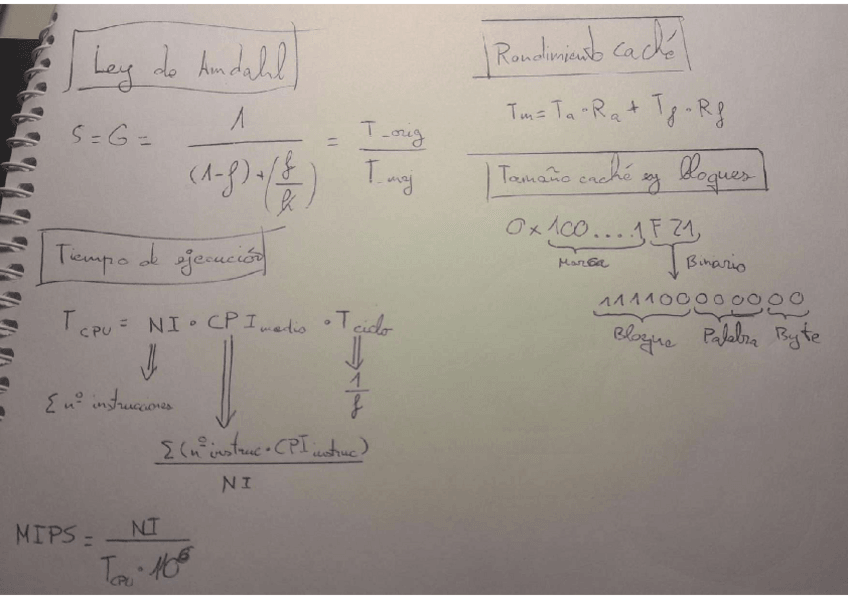 Ley de Amdahl
S = G = 1 / ((1-f) + (f/k)) = T_orig / T_mej
Tiempo de ejecución
T CPU = NI · CPI medio · T ciclo
Σ nº instrucciones
1/f
Σ(nº instruc · CPI instruc)
NI
MIPS = NI / (T CPU · 10^6)
Rendimiento caché
Tm = Ta · Ra + Tf · Rf
Tamaño caché bloques
0x100....1FZ1
Marca
Binario
111100000000
Bloque Palabra Byte